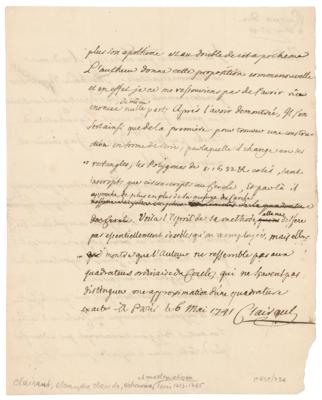 plus son apotheme est au double de cet apotheme
L'autheur donne cette proposition comme nouvelle
et en effet je ne me ressouviens pas de l'avoir vue
énoncée nulle part. Après l'avoir démontrée, il s'en
sert ainsi que de la première pour trouver une construc-
tion en forme de série, par laquelle il change en
rectangles, les Polygones de 8. 16. 32 &c cotés, tant
inscripts que circonscripts au Cercle, et par là il
approche de plus en plus de la
du Cercle. Voila l'Esprit de sa methode, elle ne differe
pas essentiellement de celles qu'on employées, mais elle
montre que l'auteur ne ressemble pas aux
quadrateurs ordinaires du Cercle, qui ne sçavent pas
distinguer une approximation d'une quadrature
exacte. A Paris le 6 Mai 1741 Clairaut
Clairaut, Alexandre Claude, Paris 1713-1765